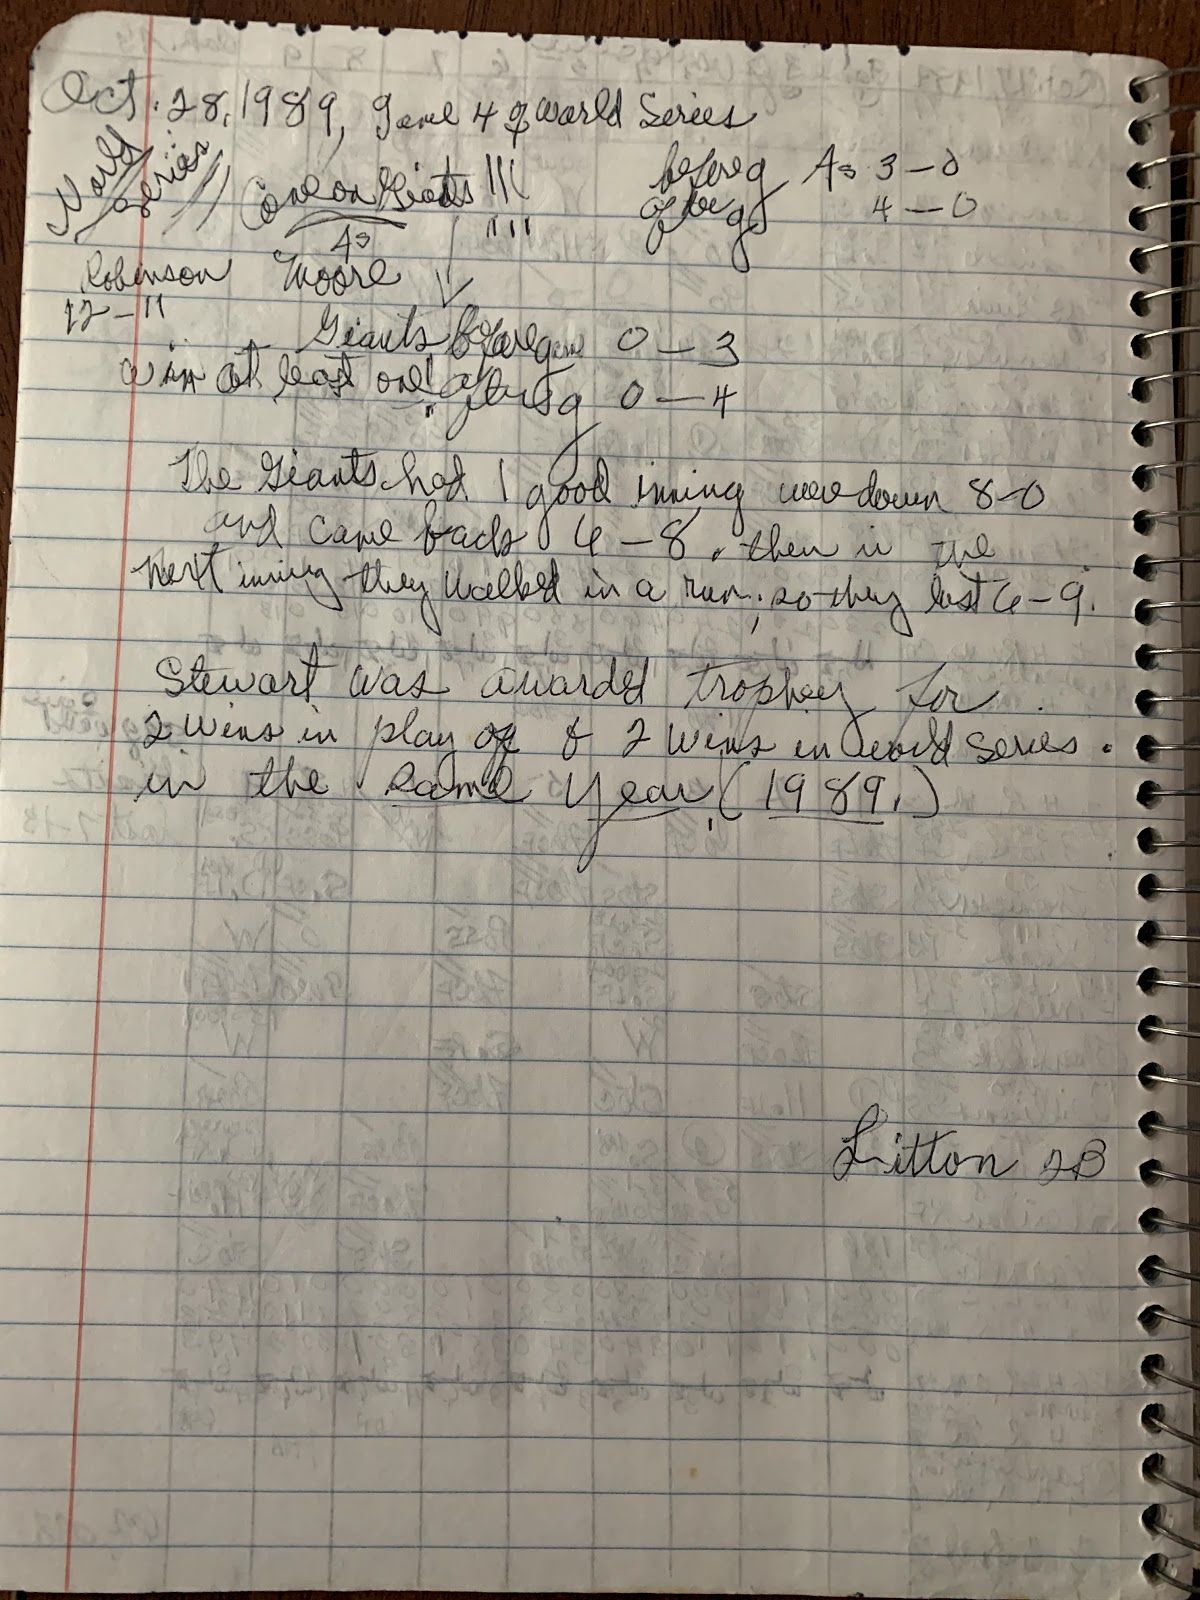 Oct. 28, 1989, Game 4 of World Series
World Series
Come on Giants !!!
before g As 3-0
after g 4-0
As
Robinson Moore
12-11
Giants before game 0-3
win at least one! after g 0-4
The Giants had 1 good inning were down 8-0
and came back 6-8, then in the
next inning they walked in a run; so they lost 6-9.
Stewart was awarded trophey for
2 wins in play off & 2 wins in world series.
in the same year, (1989.)
Litton 2B